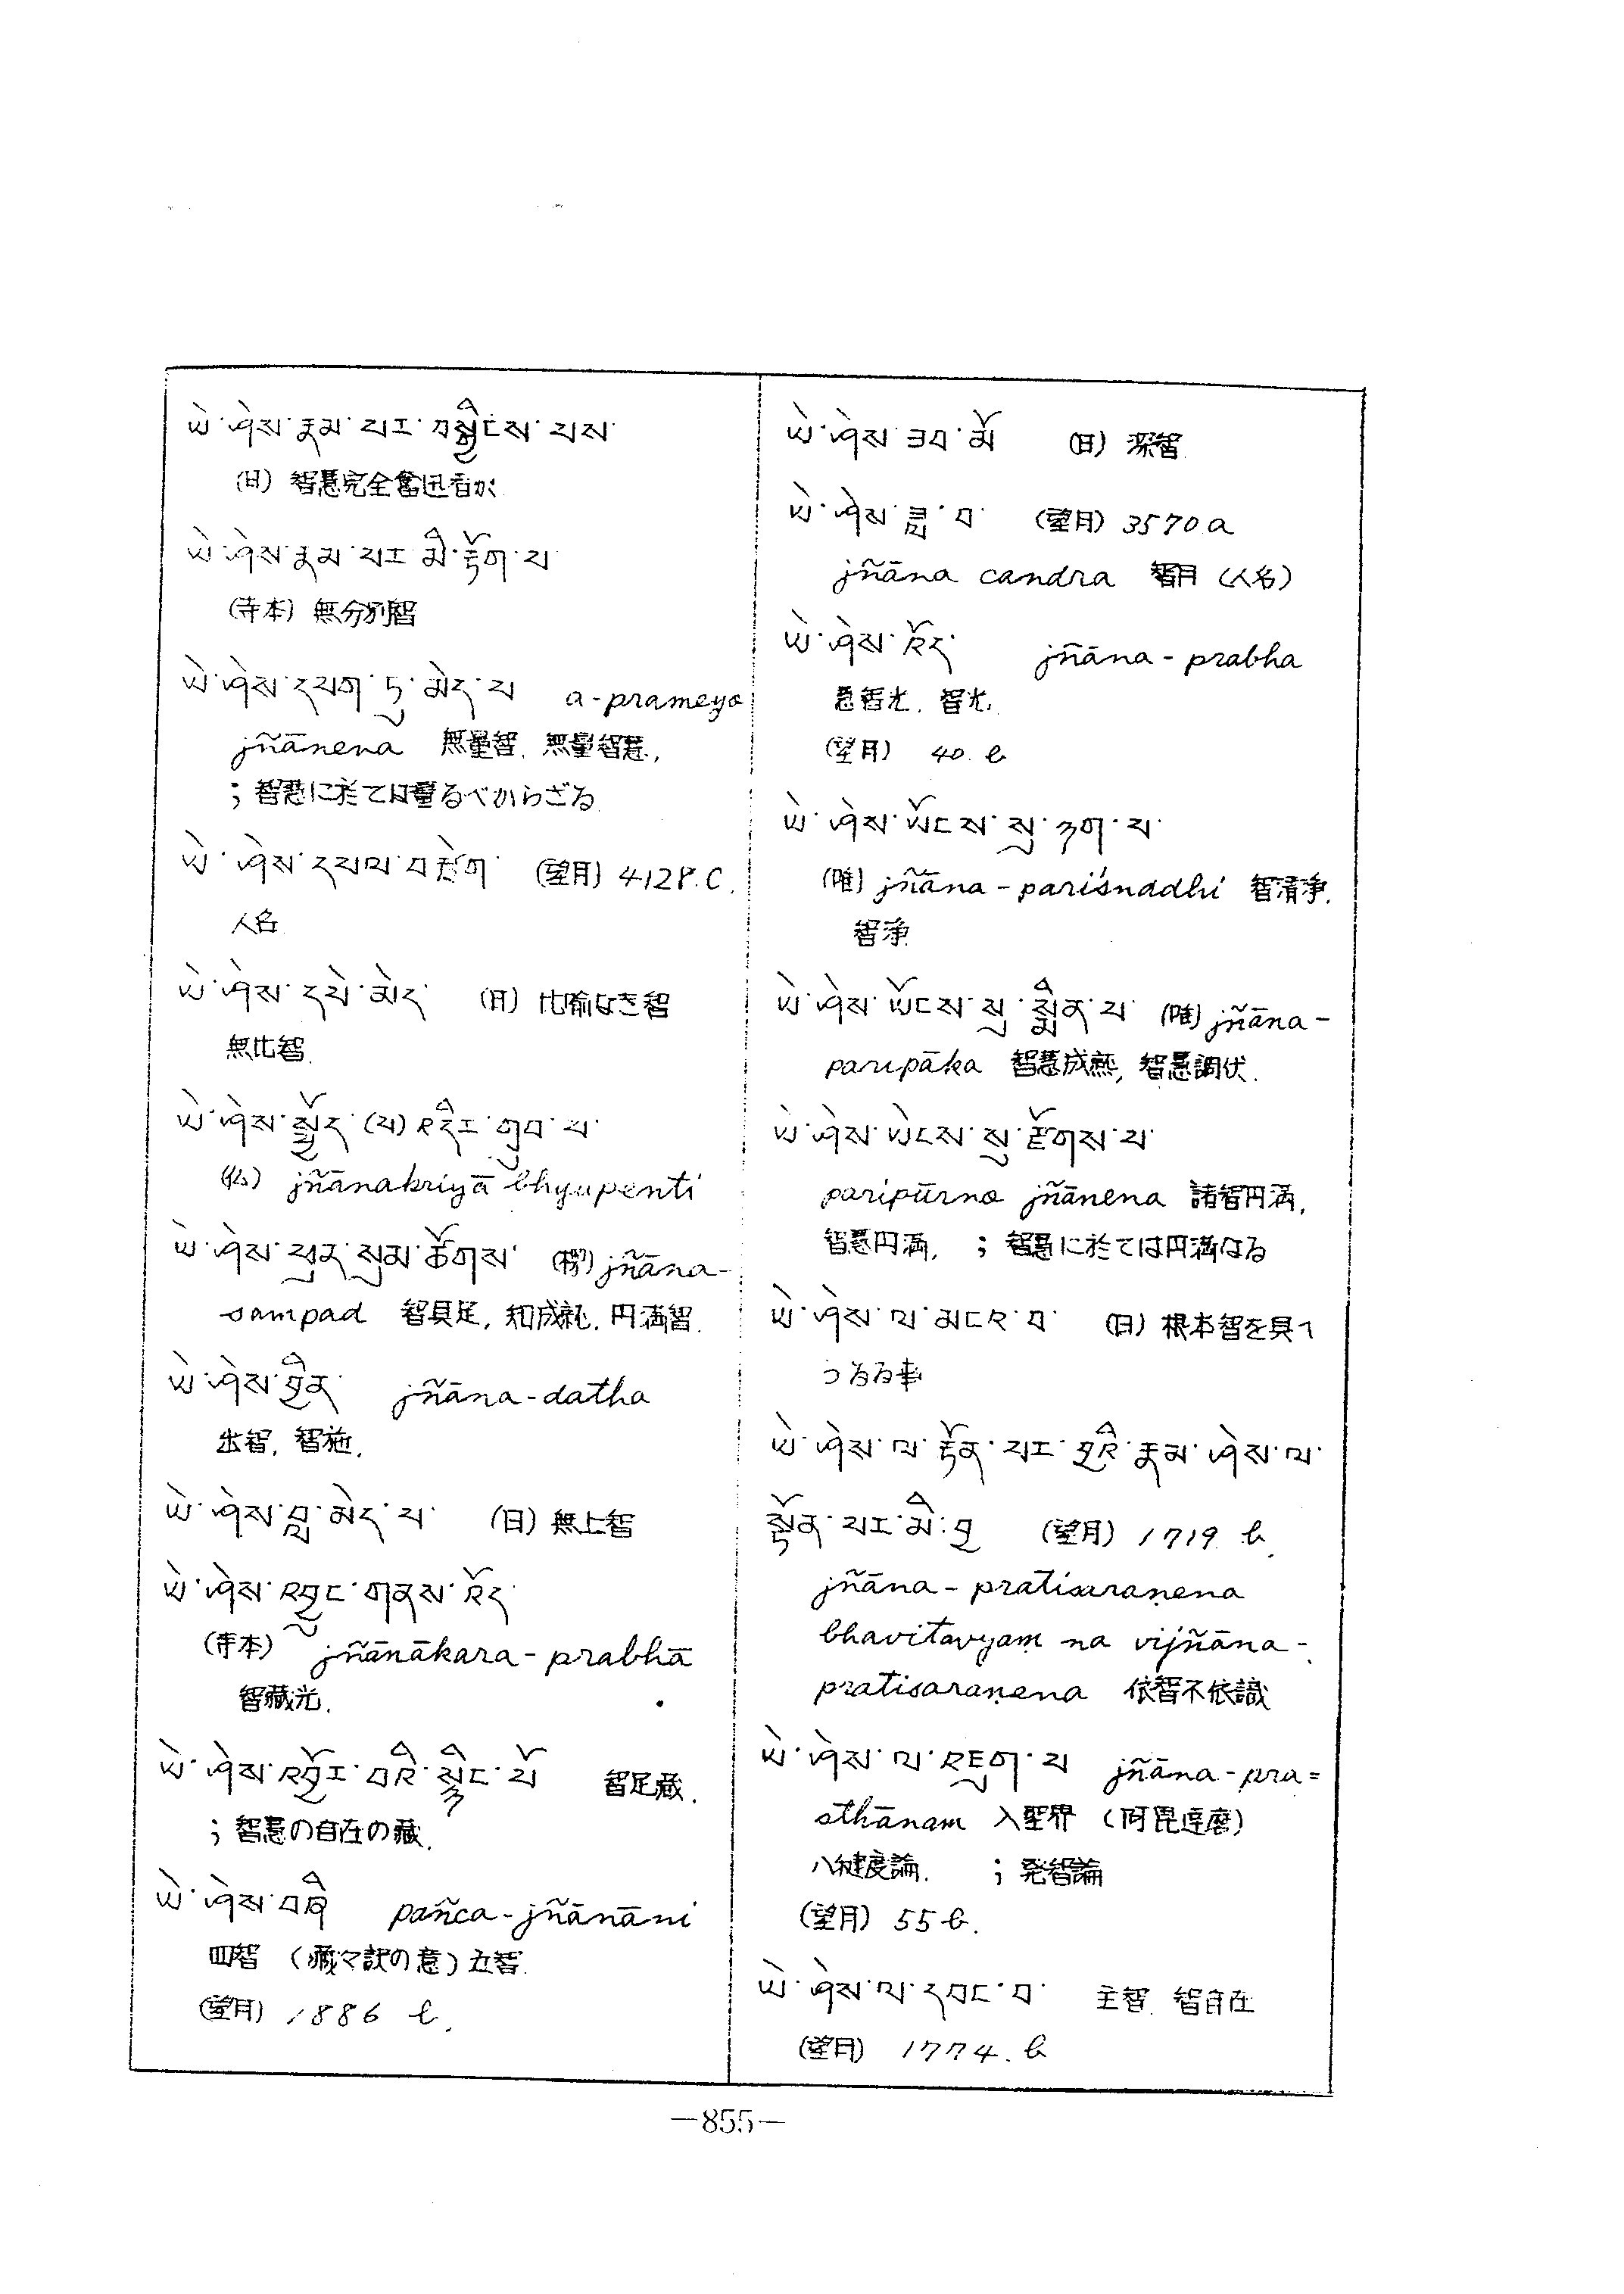 ཡེ་ཤེས་རྣམ་པར་བསྒྱིངས་པས་
(日) 智慧完全奮迅者が
ཡེ་ཤེས་རྣམ་པར་མི་རྟོག་པ
(寺本) 無分別智
ཡེ་ཤེས་དཔག་ཏུ་མེད་པ a-prameya
jñānena 無量智. 無量智慧,
; 智慧に於ては量るべからざる
ཡེ་ཤེས་དཔལ་བརྩེག (望月) 4128.C.
人名
ཡེ་ཤེས་དཔེ་མེད་ (日) 比喩なき智
無比智.
ཡེ་ཤེས་སྤྱོད་(པ)འདིར་གྲུབ་པ་
jñānakriyā bhyupenti
ཡེ་ཤེས་ཕུན་སུམ་ཚོགས་ jñāna-
sampad 智具足, 知成就. 円満智.
ཡེ་ཤེས་བྱིན་ jñāna-datha
出智, 智施.
ཡེ་ཤེས་བླ་མེད་པ་ (日) 無上智
ཡེ་ཤེས་འབྱུང་གནས་འོད་
(寺本) jñānākara-prabhā
智藏光.
ཡེ་ཤེས་འབྱོར་བའི་སྙིང་པོ 智足藏.
; 智慧の自在の藏.
ཡེ་ཤེས་བཞི pañca-jñānāni
四智 (藏々訳の意) 五智.
(望月) 1886 b.
ཡེ་ཤེས་ཟབ་མོ (日) 深智.
ཡེ་ཤེས་ཟླ་བ་ (望月) 3570.a
jñāna candra 智月 (人名)
ཡེ་ཤེས་འོད་ jñāna-prabha
慧智光. 智光.
(望月) 40. b
ཡེ་ཤེས་ཡོངས་སུ་དག་པ་
(唯) jñāna-pariśnadhi 智清淨.
智淨
ཡེ་ཤེས་ཡོངས་སུ་སྨིན་པ་ (唯) jñāna-
paripāka 智慧成熟, 智慧調伏.
ཡེ་ཤེས་ཡེངས་སུ་རྫོགས་པ་
paripūrna jñānena 諸智円満,
智慧円満, ; 智慧に於ては円満なる
ཡེ་ཤེས་ལ་མངའ་བ་ (日) 根本智を具へ
つゝある事
ཡེ་ཤེས་ལ་རྟོན་པར་བྱའི་རྣམ་ཤེས་ལ་
སྟོན་པར་མི་བྱ (望月) 1719. b.
jñāna-pratisaraṇena
bhavitavyaṃ na vijñāna-
pratisaraṇena 依智不依識
ཡེ་ཤེས་ལ་འཇུག་པ jñāna-pra=
sthānam 入聖界 (阿毘達磨)
八犍度論. ; 発智論
(望月) 55 b.
ཡེ་ཤེས་ལ་དབང་བ་ 主智. 智自在
(望月) 1774. b
—855—